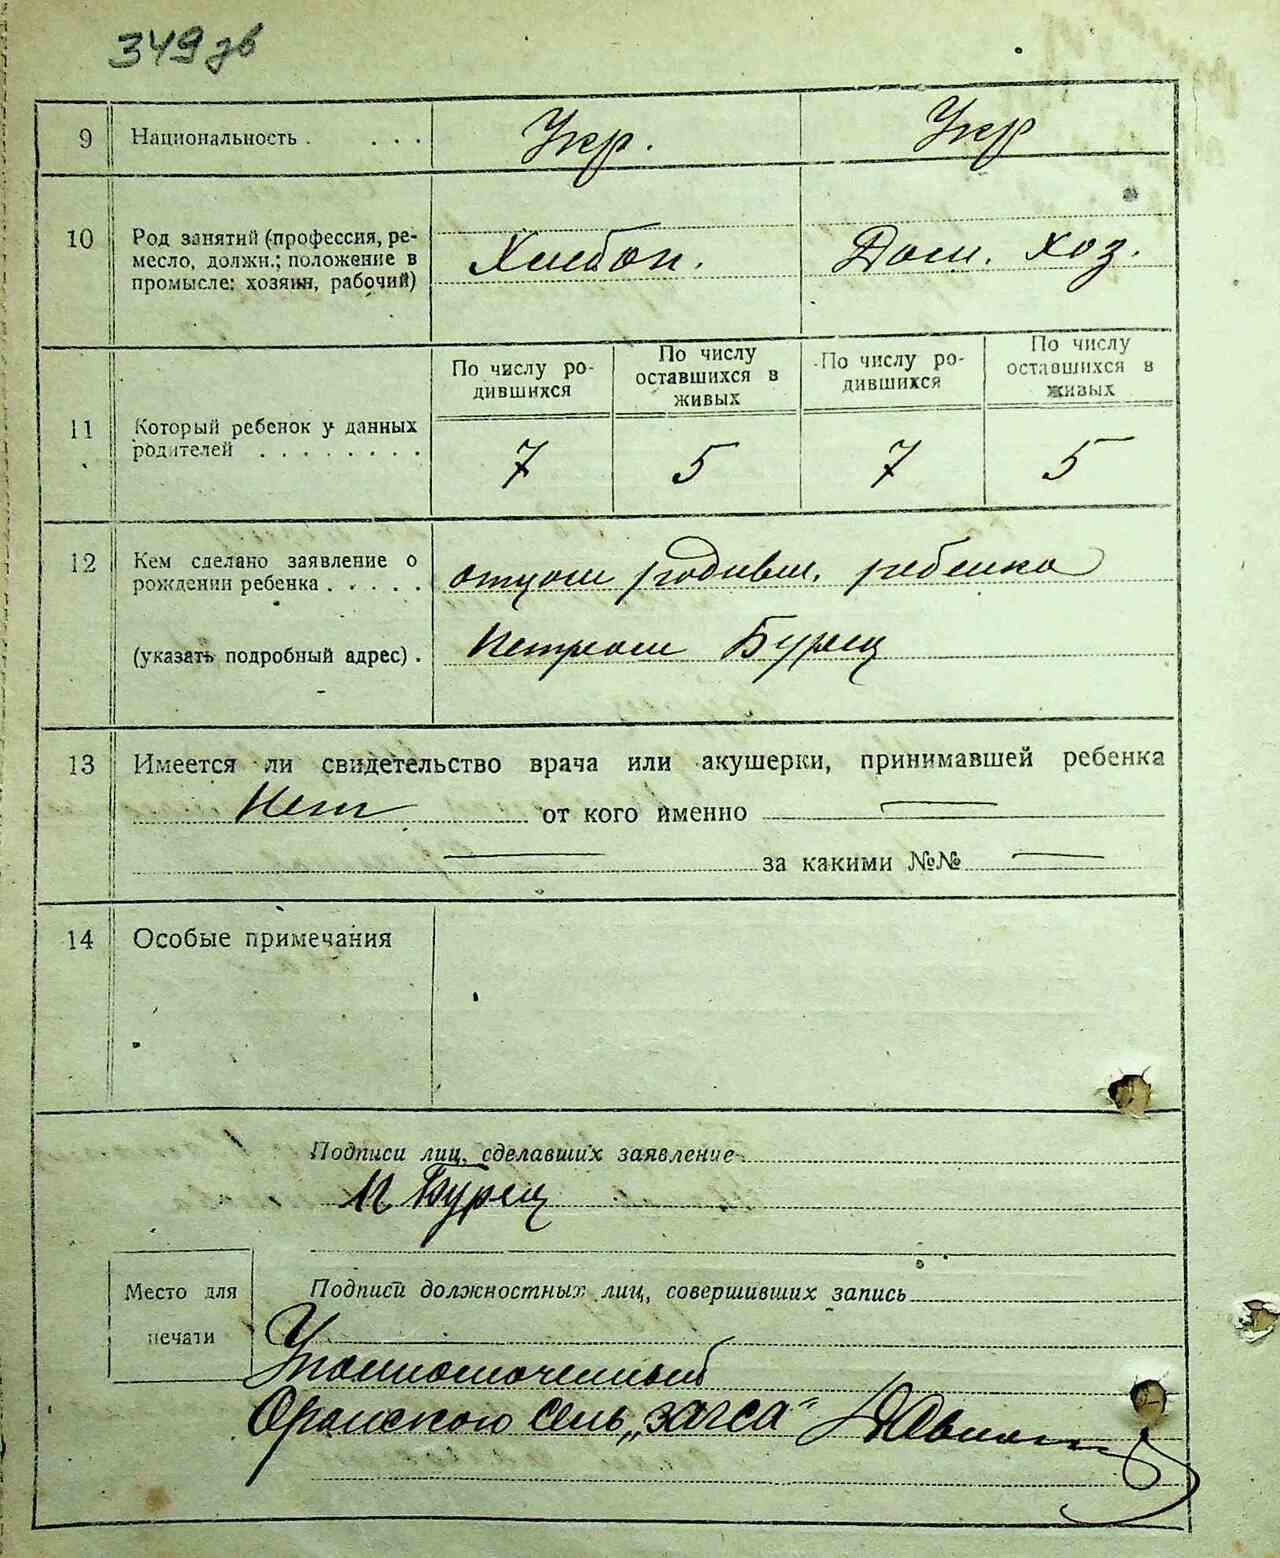 349 зв
9 Национальность . . . . Укр. Укр
10 Род занятий (профессия, ре-
месло, должн.; положение в
промысле: хозяин, рабочий)
Хлебоп. Дом. хоз.
По числу ро-
дившихся
По числу
оставшихся в
живых
По числу ро-
дившихся
По числу
оставшихся в
живых
11 Который ребенок у данных
родителей . . . . . . . .
7 5 7 5
12 Кем сделано заявление о
рождении ребенка . . . . .
отцом родивш. ребенка
(указать подробный адрес) . Петром Бурец
13 Имеется ли свидетельство врача или акушерки, принимавшей ребенка
Нет от кого именно —
— за какими №№ —
14 Особые примечания
Подписи лиц, сделавших заявление
П Бурец
Место для
печати
Подписи должностных лиц, совершивших запись
Уполномоченный
Оранского сель „загса"